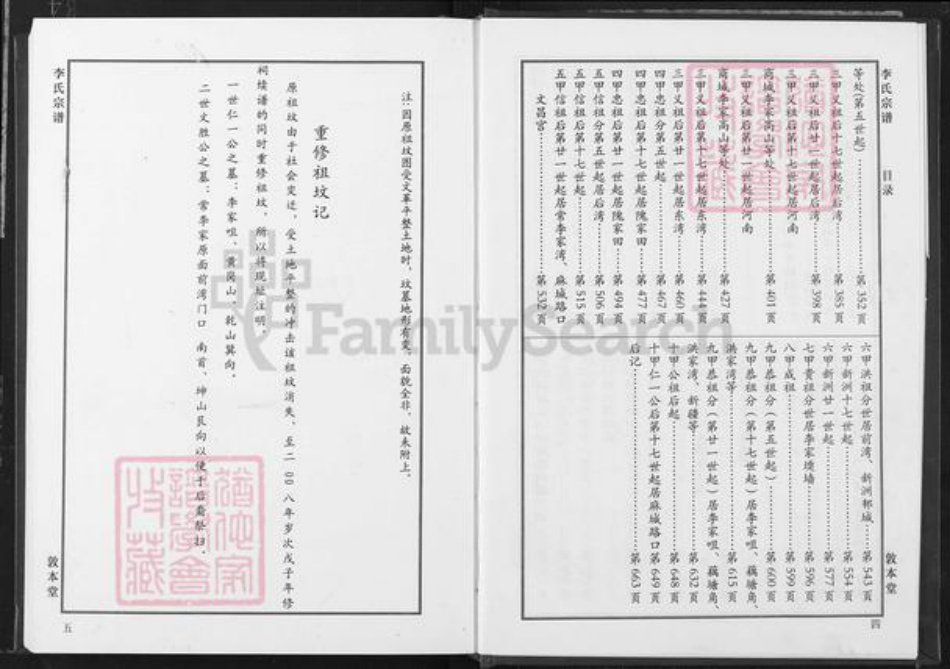 李氏宗谱
目录
等处(第五世起)……第352页
三甲义祖后十七世起居后湾……第385页
三甲义祖后廿一世起居后湾……第398页
三甲义祖后第十七世起居河南
商城李家高山等处……第401页
三甲义祖后第廿一世起居河南
商城李家高山等处……第427页
三甲义祖后第十七世起居东湾……第444页
三甲义祖后第廿一世起居东湾……第460页
四甲忠祖分第五世起……第467页
四甲忠祖后第十七世起居隗家田……第477页
四甲忠祖后第廿一世起居隗家田……第494页
五甲信祖分第五世起居后湾……第506页
五甲信祖后第十七世起……第515页
五甲信祖后第廿一世起居常李家湾、麻城路口
文昌宫……第532页
六甲洪祖分世居前湾、新洲邾城……第543页
六甲新洲十七世起……第554页
六甲新洲廿一世起……第577页
七甲贵祖分世居李家墙……第596页
八甲成祖……第599页
九甲恭祖分(第五世起)……第600页
九甲恭祖分(第十七世起)居李家咀、藕塘角、
洪家湾等……第615页
九甲恭祖分(第廿一世起)居李家咀、藕塘角、
洪家湾、新疆等……第632页
十甲公祖后起……第648页
十甲仁一公后第十七世起居麻城路口第649页
后记……第663页
敦本堂
四
李氏宗谱
注:因原祖坟图受文革平整土地时,坟墓地形有变,面貌全非,故未附上。
重修祖坟记
原祖坟由于社会变迁,受土地平整的冲击该祖坟消失,至二00八年岁次戊子年修
祠续谱的同时重修祖坟,所以将现址注明。
一世仁一公之墓:李家咀、黄岗山、乾山巽向。
二世文胜公之墓:常李家原面前湾门口 南首、坤山艮向以便于后裔祭扫。
敦本堂
五
FamilySearch